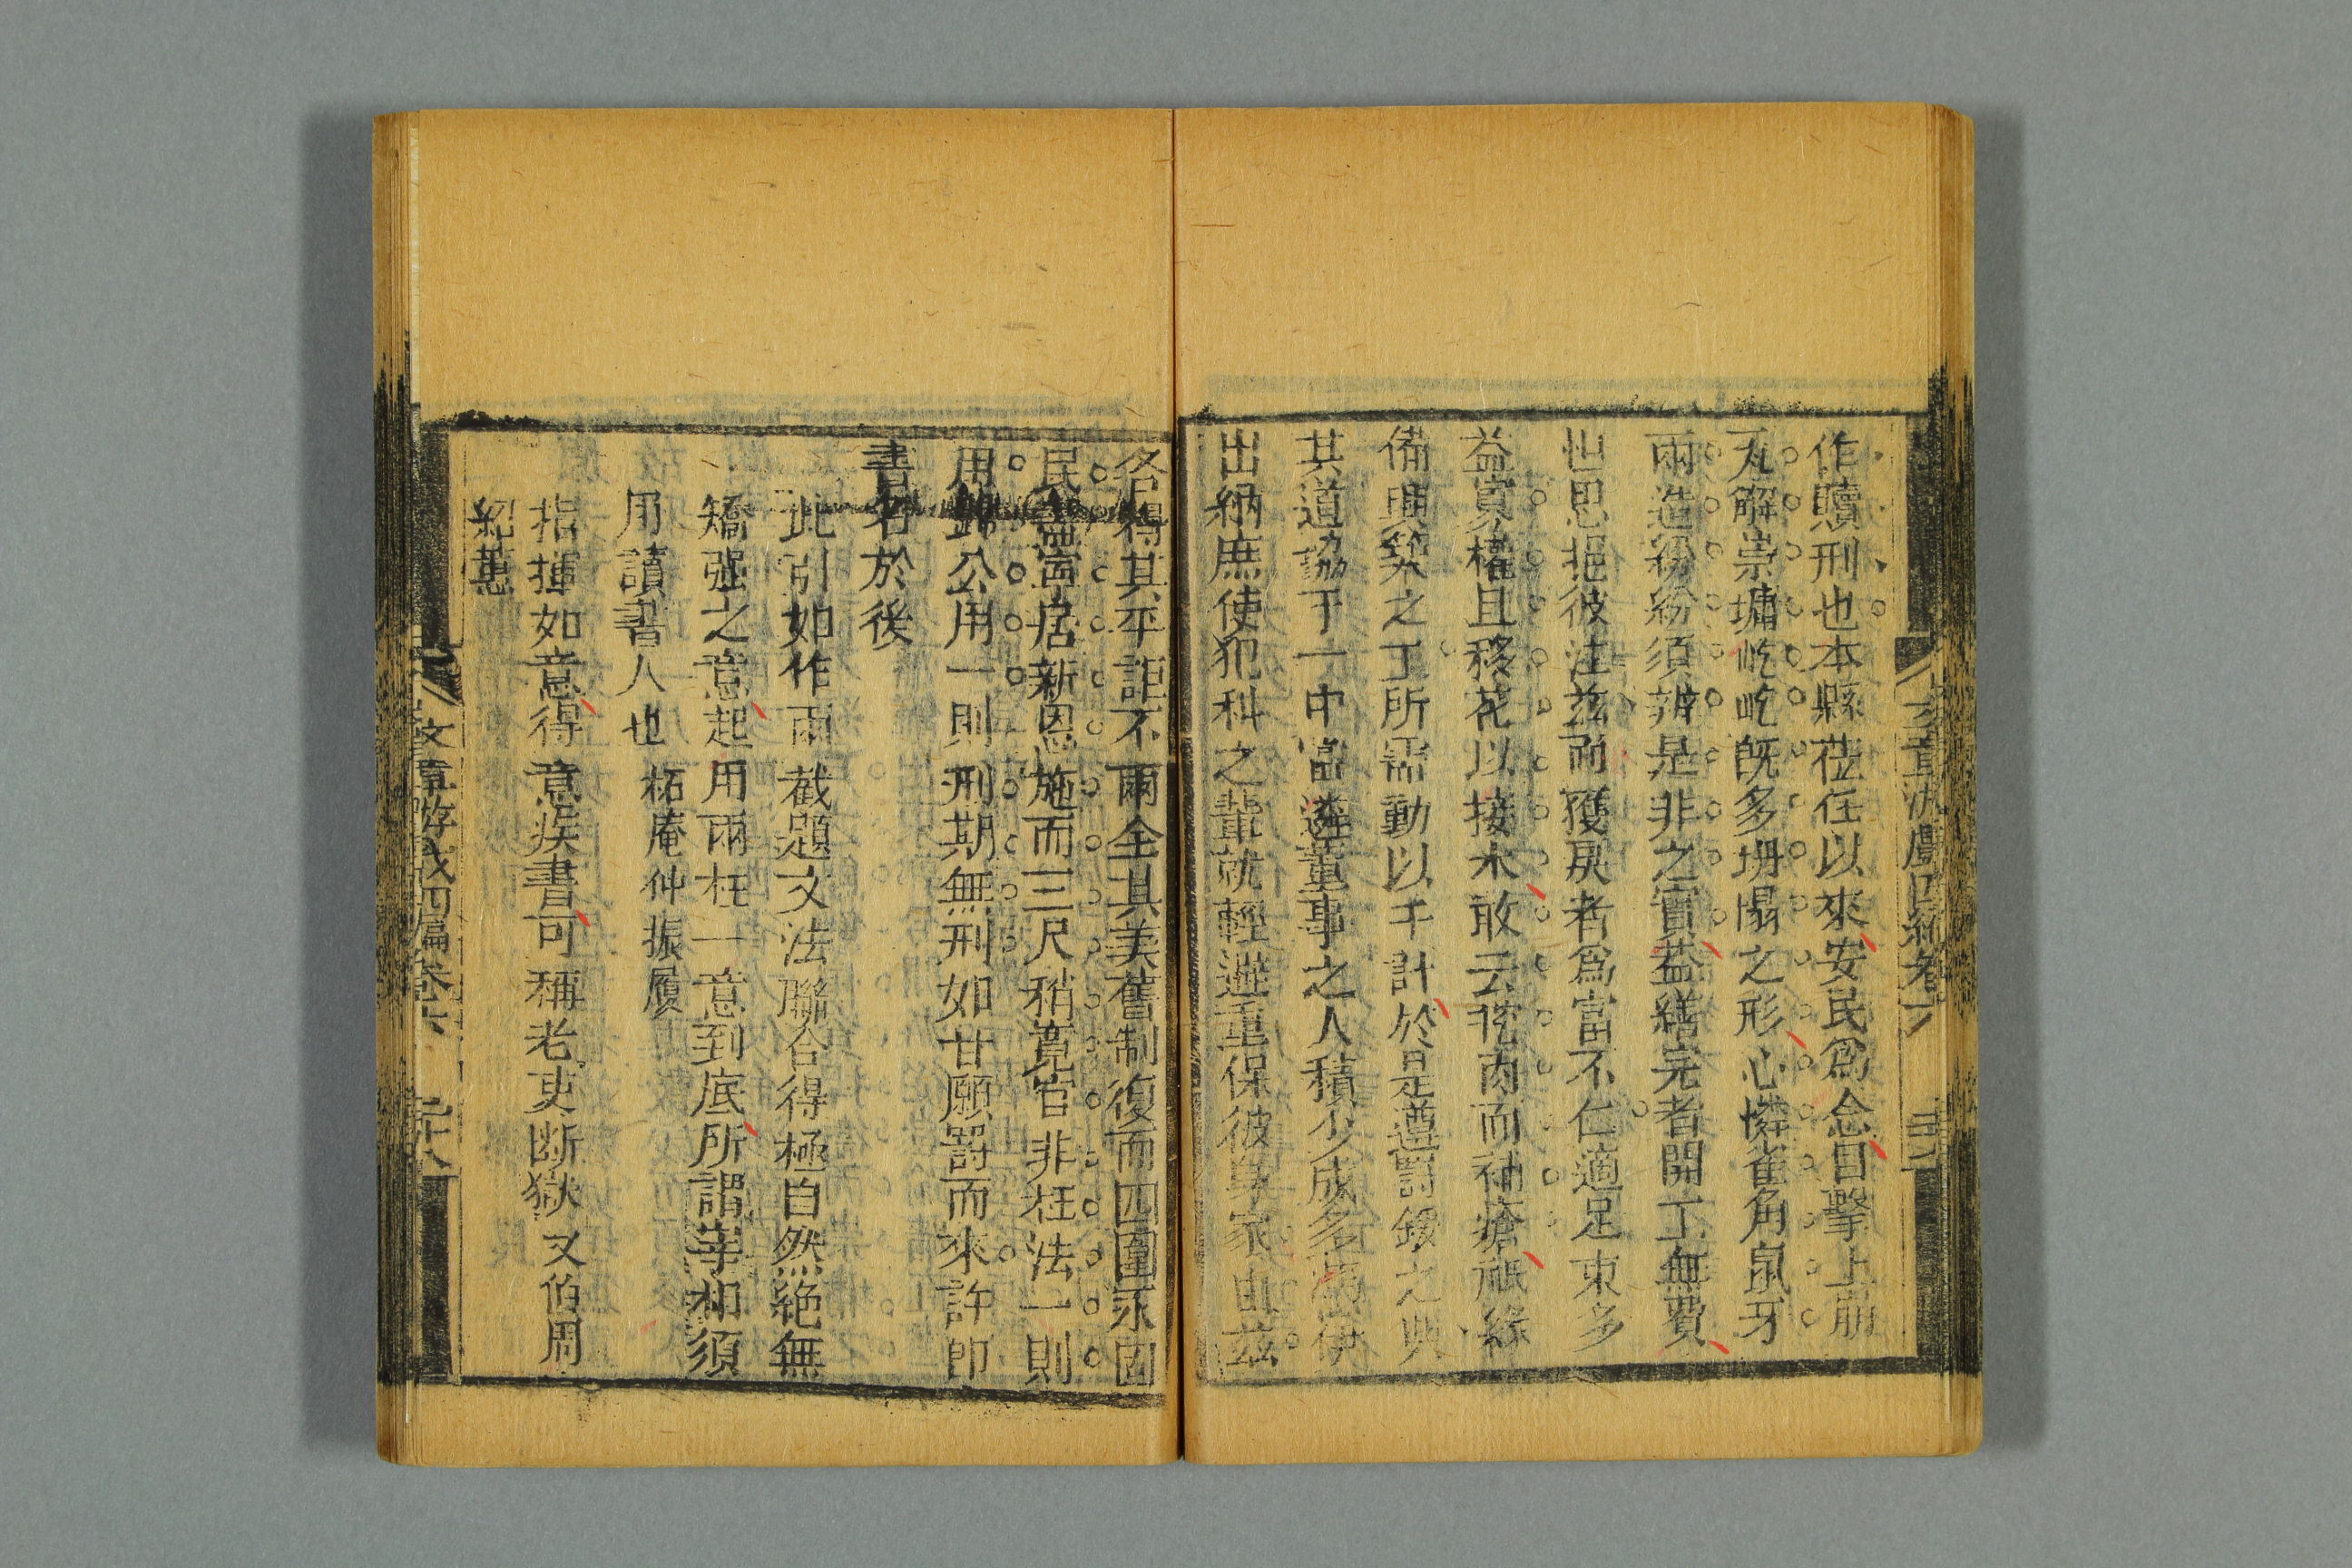 作贖刑也本縣莅任以來安民爲念目擊上崩
瓦解崇墉屹屹旣多坍塌之形心憐雀角鼠牙
兩造紛紛須辨是非之實葢繕完者開工無費
思挹彼注兹而獲戾者爲富不仁適足東多
益寡權且移花以接木敢云挖肉而補瘡祗緣
備興築之工所需動以千計於是遵罰鍰之典
其道協于一中富遴董事之人積少成多爲伊
出納庶使犯科之輩就輕避重保彼身家由兹
各得其平詎不兩全其美舊制復而四圍永固
民盡寧居新恩施而三尺稍寛官非枉法一則
用歸公用一則刑期無刑如甘願罰而來許卽
書名於後
此引如作兩截題文法聯合得極自然絶無
矯强之意起用兩柱一意到底所謂宰相須
用讀書人也 柘庵仲振履
指揮如意得意疾書可稱老吏断獄 又伯周
紹蕙
文章游戲四編卷六
文章游戲四編卷六